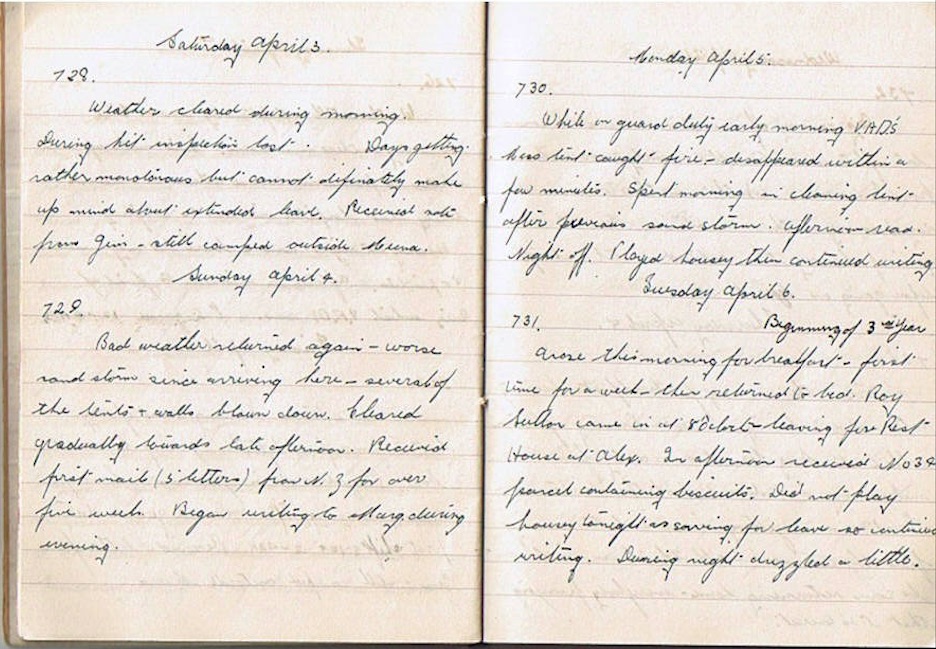 Saturday April 3.
728.
Weather cleared during morning.
During kit inspection lost . Days getting
rather monotonous but cannot definately make
up mind about extended leave. Received note
from Gin - still camped outside Meena.
Sunday April 4.
729.
Bad weather returned again - worse
sand storm since arriving here - several of
the tents + walls blown down. Cleared
gradually towards late afternoon. Received
first mail (5 letters) from N.Z for over
five week. Began writing to Marg. during
evening.
Monday April 5.
730.
While on guard duty early morning VADS
mess tent caught fire - disappeared within a
few minutes. Spent morning in cleaning tent
after previous sand storm. Afternoon read.
Night off. Played housey then continued writing
Tuesday April 6.
731. Beginning of 3rd Year
Arose this morning for breakfast - first
time for a week - then returned to bed. Roy
came in at 8 oclock - leaving for Rest
House at Alex. In afternoon received No 34
parcel containing biscuits. Did not play
housey tonight as saving for leave so continued
writing. During night drizzled a little.